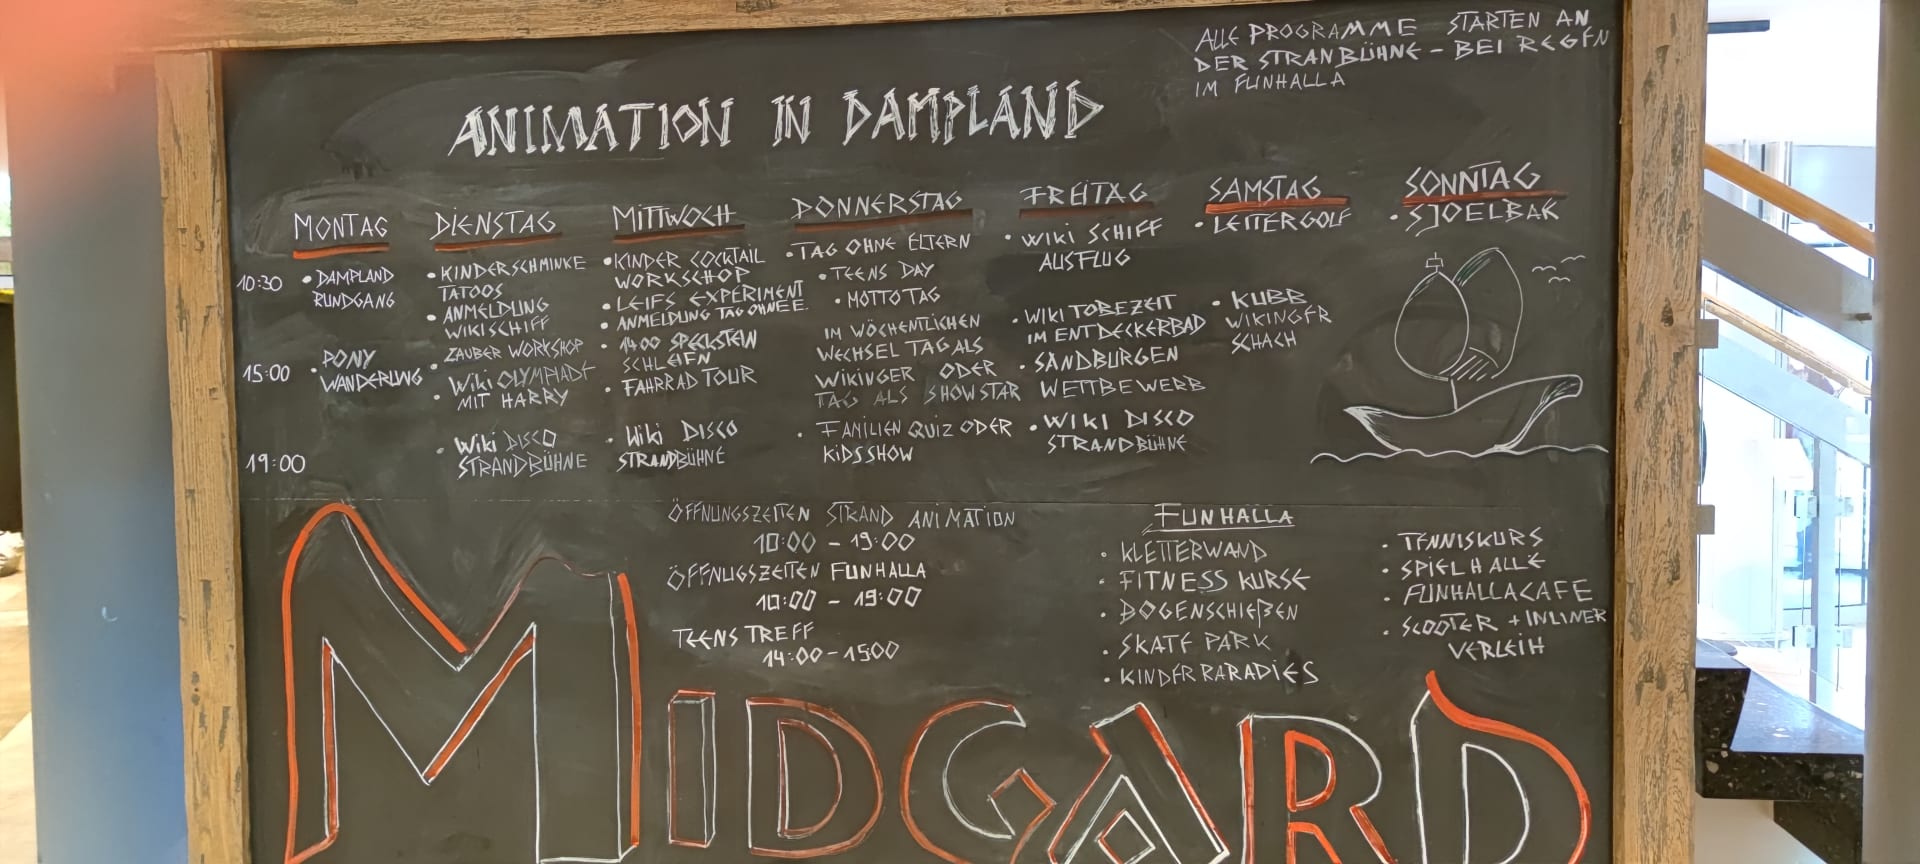 ALLE PROGRAMME STARTEN AN
DER STRANBÜHNE - BEI REGEN
IM FUNHALLA
ANIMATION IN DAMPLAND
MONTAG
10:30
• DAMPLAND
RUNDGANG
15:00
• PONY
WANDERUNG
19:00
DIENSTAG
• KINDERSCHMINKE
TATOOS
• ANMELDUNG
WIKISCHIFF
• ZAUBER WORKSHOP
• WiKi OLYMPIADE
MIT HARRY
• Wiki DISCO
STRANDBÜHNE
MITTWOCH
• KINDER COCKTAIL
WORKSCHOP
• LEIFS EXPERIMENT
• ANMELDUNG TAG OHNE E.
• 1400 SPECKSTEIN
SCHLEIFN
• FAHRRAD TOUR
• Wiki DISCO
STRANDBÜHNE
DONNERSTAG
• TAG OHNE ELTERN
• TEENS DAY
• MOTTOTAG
IM WÖCHENTLICHEN
WECHSEL TAG ALS
WIKINGER ODER
TAG ALS SHOWSTAR
• FAMILIEN QUIZ ODER
KIDSSHOW
FREITAG
• WIKI SCHIFF
AUSFLUG
• WIKI TOBEZEIT
IM ENTDECKERBAD
• SANDBURGEN
WETTBEWERB
• WIKI DISCO
STRANDBÜHNE
SAMSTAG
• LEITERGOLF
• KUBB
WIKINGER
SCHACH
SONNTAG
• SJOELBAK
ÖFFNUNGSZEITEN STRAND ANIMATION
10:00 - 19:00
ÖFFNUGSZEITEN FUNHALLA
10:00 - 19:00
TEENS TREFF
14:00-1500
FUNHALLA
• KLETTERWAND
• FITNESS KURSE
• BOGENSCHIEßEN
• SKATE PARK
• KINDERRARADIES
• TENNISKURS
• SPIELHALLE
• FUNHALLACAFE
• SCOOTER + INLINER
VERLEIH
MIDGARD